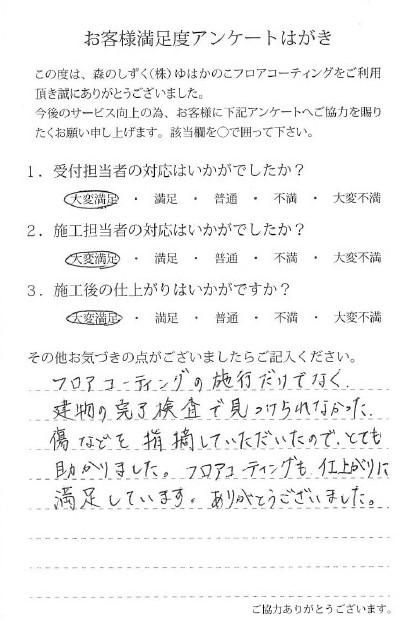 お客様満足度アンケートはがき
この度は、森のしずく(株)ゆはかのこフロアコーティングをご利用
頂き誠にありがとうございました。
今後のサービス向上の為、お客様に下記アンケートへご協力を賜り
たくお願い申し上げます。該当欄を○で囲って下さい。
1．受付担当者の対応はいかがでしたか？
大変満足 ・ 満足 ・ 普通 ・ 不満 ・ 大変不満
2．施工担当者の対応はいかがでしたか？
大変満足 ・ 満足 ・ 普通 ・ 不満 ・ 大変不満
3．施工後の仕上がりはいかがですか？
大変満足 ・ 満足 ・ 普通 ・ 不満 ・ 大変不満
その他お気づきの点がございましたらご記入ください。
フロアコーティングの施行だけでなく、
建物の完了検査で見つけられなかった
傷などを指摘していただいたので、とても
助かりました。フロアコーティングも仕上がりに
満足しています。ありがとうございました。
ご協力ありがとうございます。